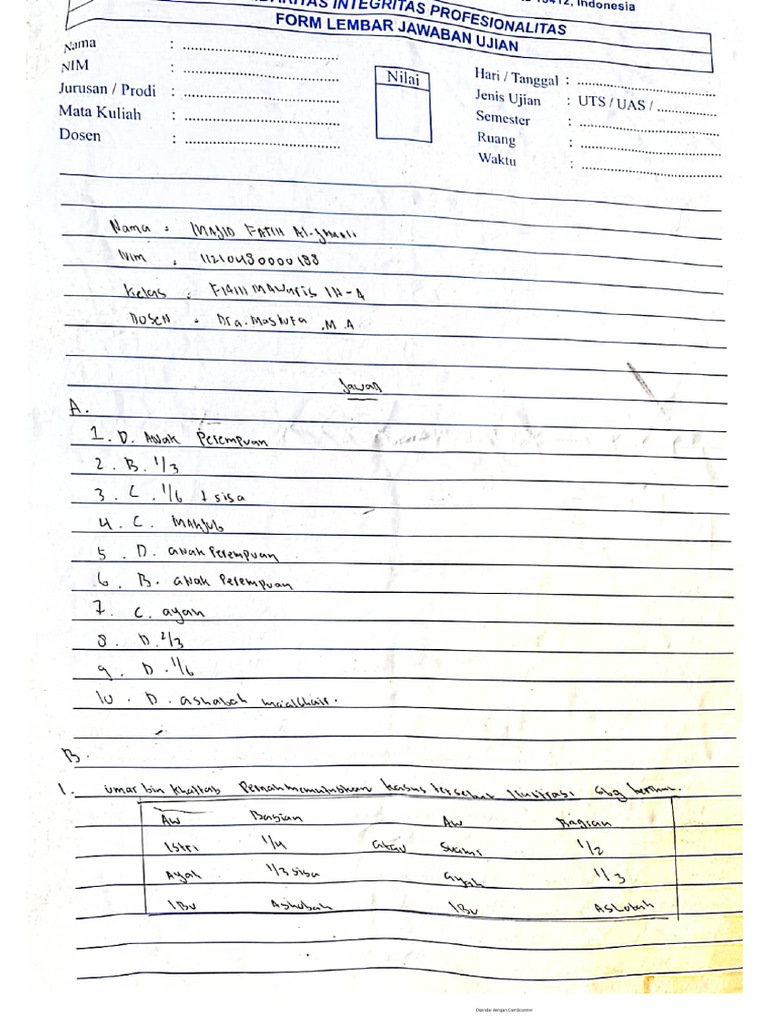 15412, Indonesia
INTEGRITAS PROFESIONALITAS
FORM LEMBAR JAWABAN UJIAN
Nama : ............
NIM : ............
Jurusan / Prodi : ............
Mata Kuliah : ............
Dosen : ............
Nilai
Hari / Tanggal : ............
Jenis Ujian : UTS / UAS / ............
Semester : ............
Ruang : ............
Waktu : ............
Nama : MAJID FATIH Al-ghazali
Nim : 11210430000133
Kelas : FIQIH MAWARIS IH-A
Dosen : Dra. Maskufa .M.A
Jawab
A.
1. D. Anak Perempuan
2. B. 1/3
3. C. 1/6 + sisa
4. C. Mahjub
5. D. anak Perempuan
6. B. anak Perempuan
7. C. ayah
8. D. 2/3
9. D. 1/6
10. D. ashabah maalghair.
B.
1. Umar bin Khattab Pernah memutuskan kasus tersebut Ilustrasi sbg berikut.
AW Bagian AW Bagian
Istri 1/4 atau Suami 1/2
Ayah 1/3 sisa ayah 1/3
IBu Ashobah IBu Ashobah
Dipindai dengan CamScanner